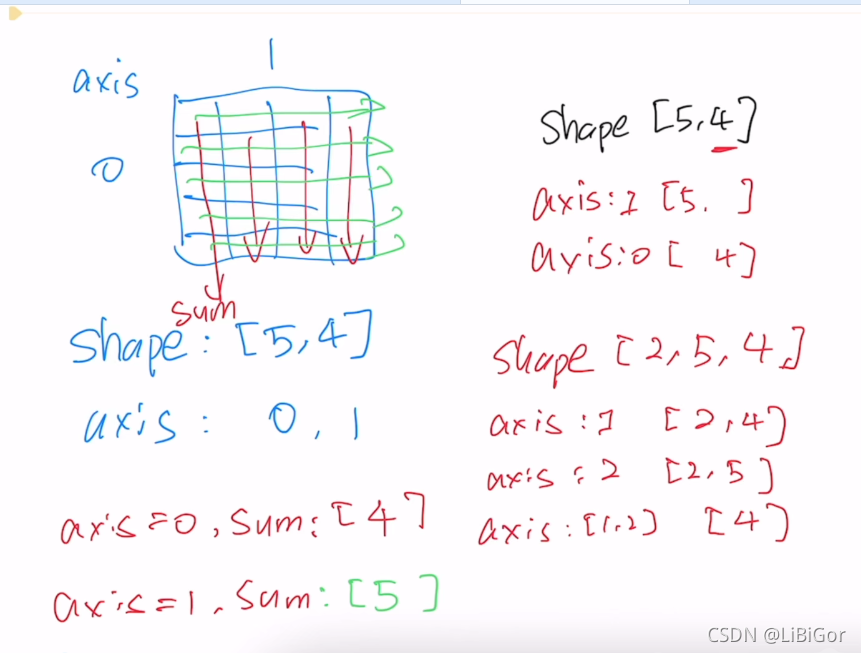 axis
1
0
sum
shape: [5,4]
axis: 0, 1
axis=0, Sum: [4]
axis=1, Sum: [5]
Shape [5,4]
axis:1 [5. ]
axis:0 [ 4]
shape [2,5,4]
axis:1 [2,4]
axis:2 [2,5]
axis:[1,2] [4]
CSDN @LiBiGor